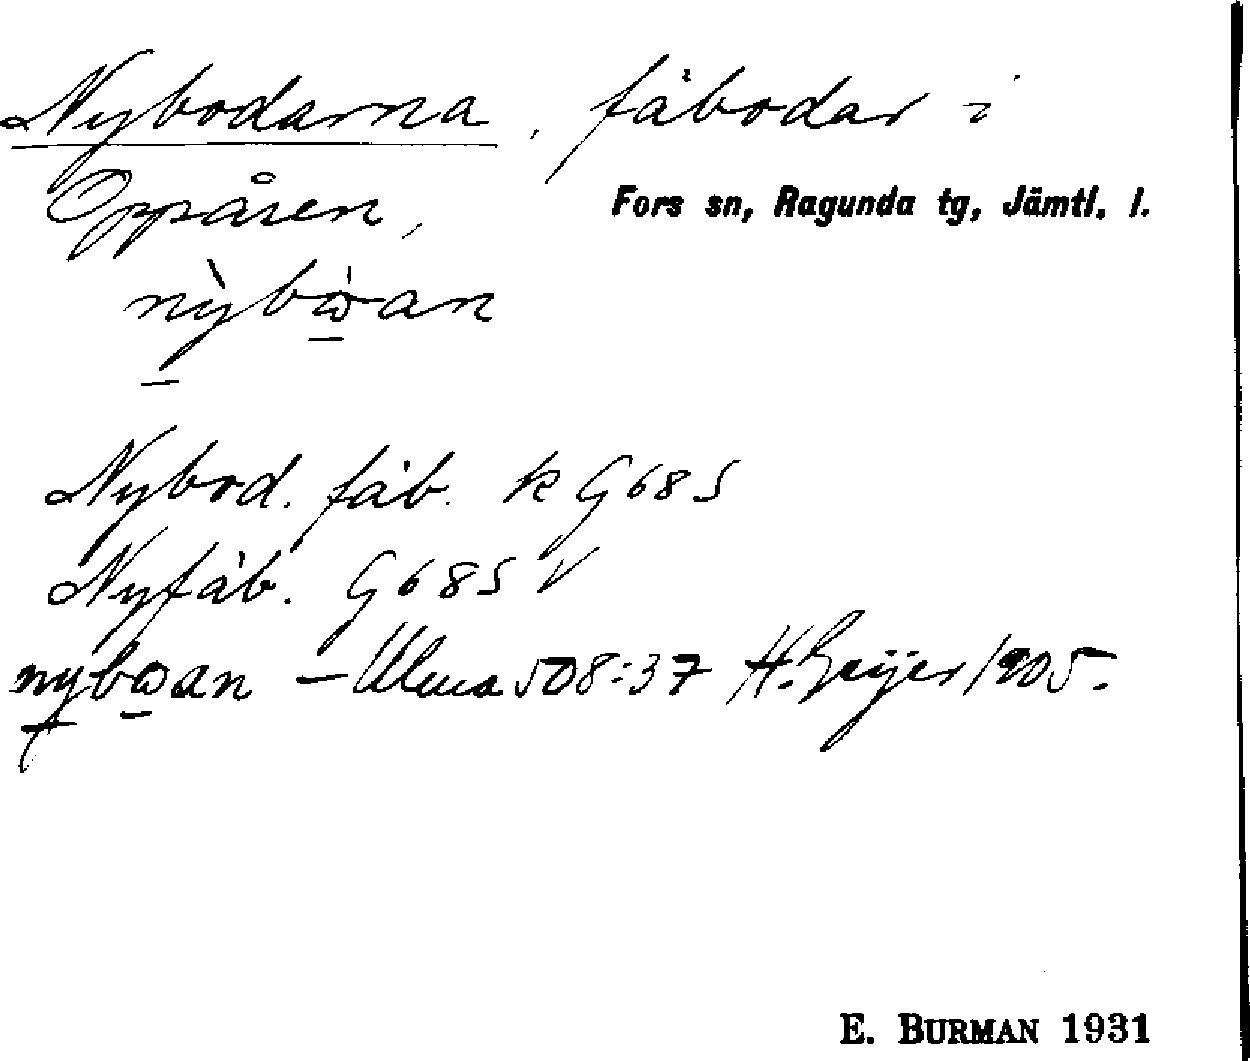 Nybodarna, fäbodar i
Oppåsen, Fors sn, Ragunda tg, Jämtl. l.
nỳbɷ̀an
Nybod. fäb. k G 68 S
Nyfäb. G 68 S V
nybɷan – Ulma 508:37 H. Geijer 1905.
E. BURMAN 1931